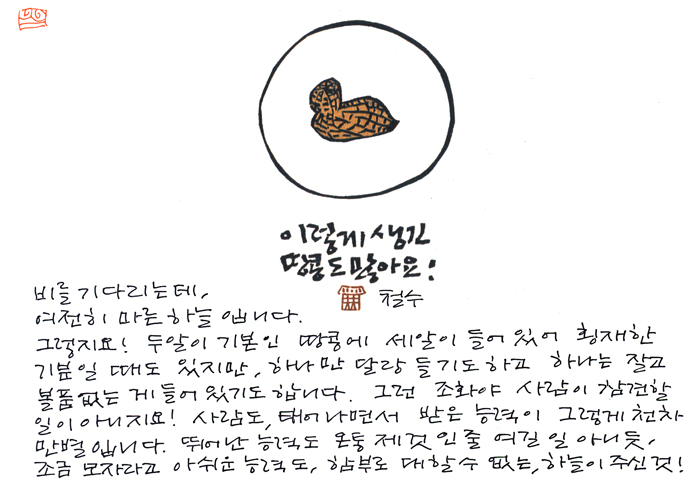 이렇게 생긴
땅콩도 많아요!
철수
비를 기다리는데,
여전히 마른 하늘 입니다.
그렇지요! 두알이 기본인 땅콩에 세알이 들어 있어 횡재한
기분일 때도 있지만, 하나만 달랑 들기도 하고 하나는 잘고
볼품없는 게 들어 있기도 합니다. 그런 조화야 사람이 참견할
일이 아니지요! 사람도, 태어나면서 받은 능력이 그렇게 천차
만별 입니다. 뛰어난 능력도 온통 제것 인줄 여길 일 아니듯,
조금 모자라고 아쉬운 능력도, 함부로 대할수 없는, 하늘이 주신 것!